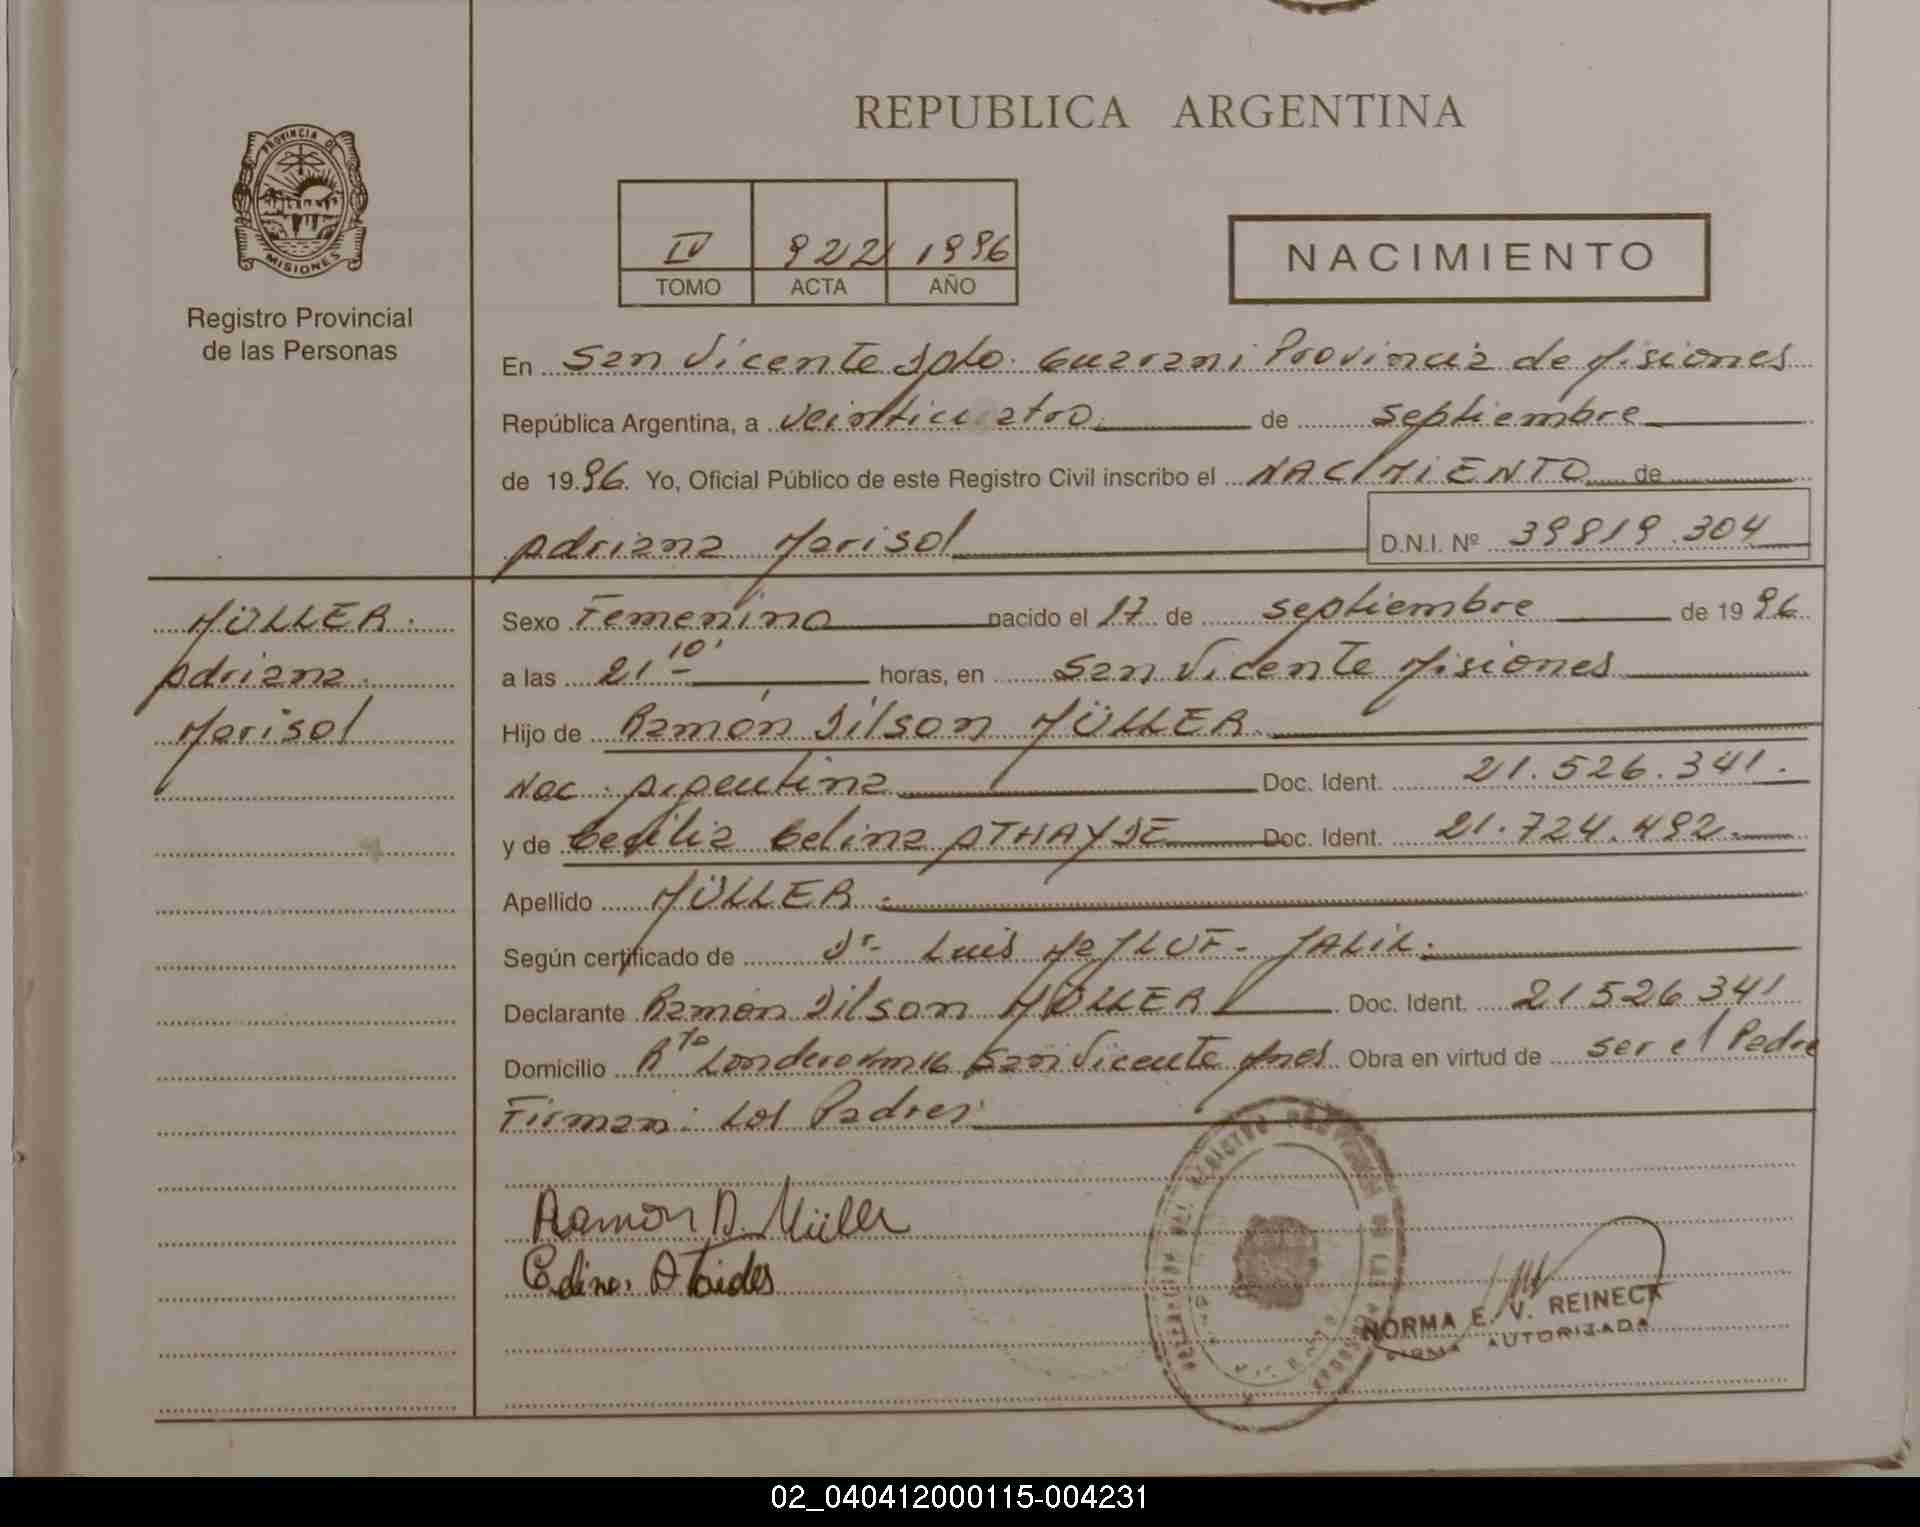 REPUBLICA ARGENTINA
PROVINCIA DE
MISIONES
Registro Provincial
de las Personas
IV 922 1996
TOMO ACTA AÑO
NACIMIENTO
En San Vicente Dpto. Guarani Provincia de Misiones
República Argentina, a veinticuatro de septiembre
de 1996. Yo, Oficial Público de este Registro Civil inscribo el NACIMIENTO de
Adriana Marisol D.N.I. Nº 39819.304
MÜLLER.
Adriana.
Marisol
Sexo Femenino nacido el 17 de septiembre de 1996
a las 21 10' horas, en San Vicente Misiones
Hijo de Ramón Dilson MÜLLER.
Nac. Argentina Doc. Ident. 21.526.341.
y de Cecilia Celina ATHAYDE Doc. Ident. 21.724.492.
Apellido MÜLLER.
Según certificado de Dr. Luis JALIL.
Declarante Ramón Dilson MÜLLER Doc. Ident. 21526341
Domicilio San Vicente Mnes. Obra en virtud de ser el Padre
Firman: Los Padres:
Ramon D. Müller
Celina Ataides
NORMA E. V. REINECK
FIRMA AUTORIZADA
02_040412000115-004231